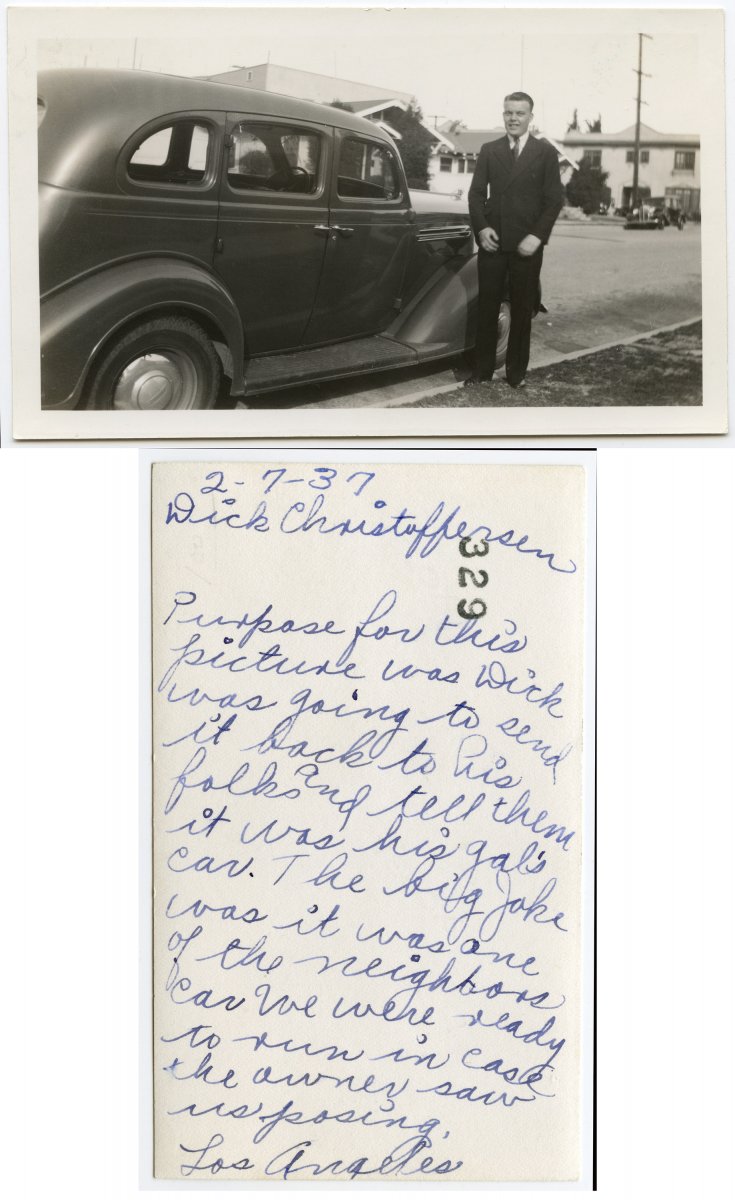 2-7-37
Dick Christoffersen
329
Purpose for this
picture was Dick
was going to send
it back to his
folks and tell them
it was his gal's
car. The big Joke
was it was one
of the neighbors
car We were ready
to run in case
the owner saw
us posing.
Los Angeles